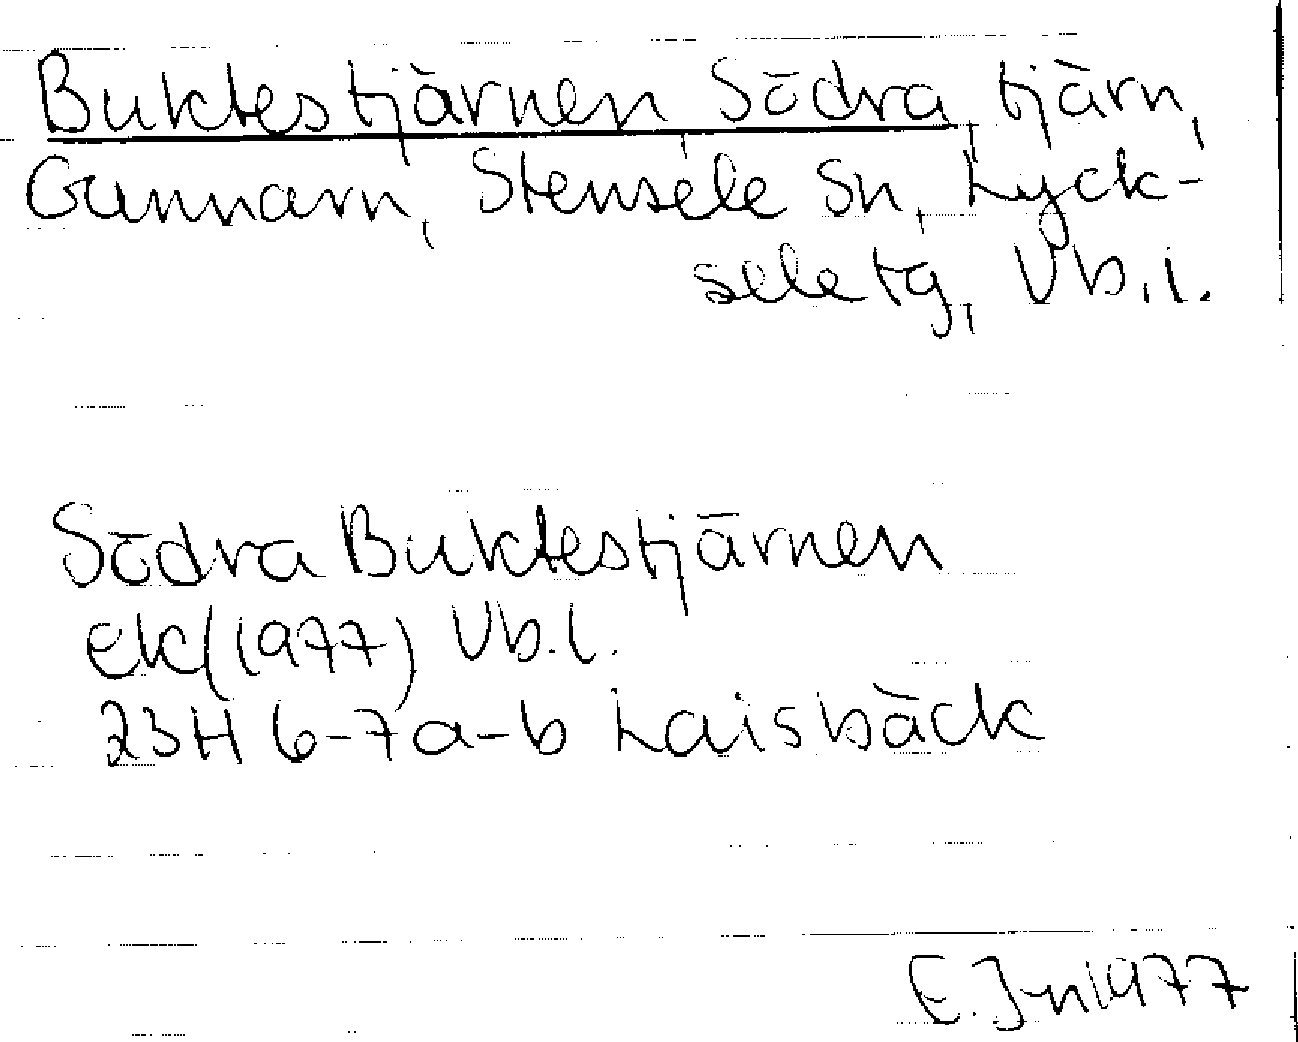 Buktestjärnen Södra, tjärn,
Gunnarn, Stensele sn, Lyck-
sele tg, Vb.l.
Södra Buktestjärnen
ek (1977) Vb.l.
23H 6-7a-b Laisbäck
E. J-n 1977